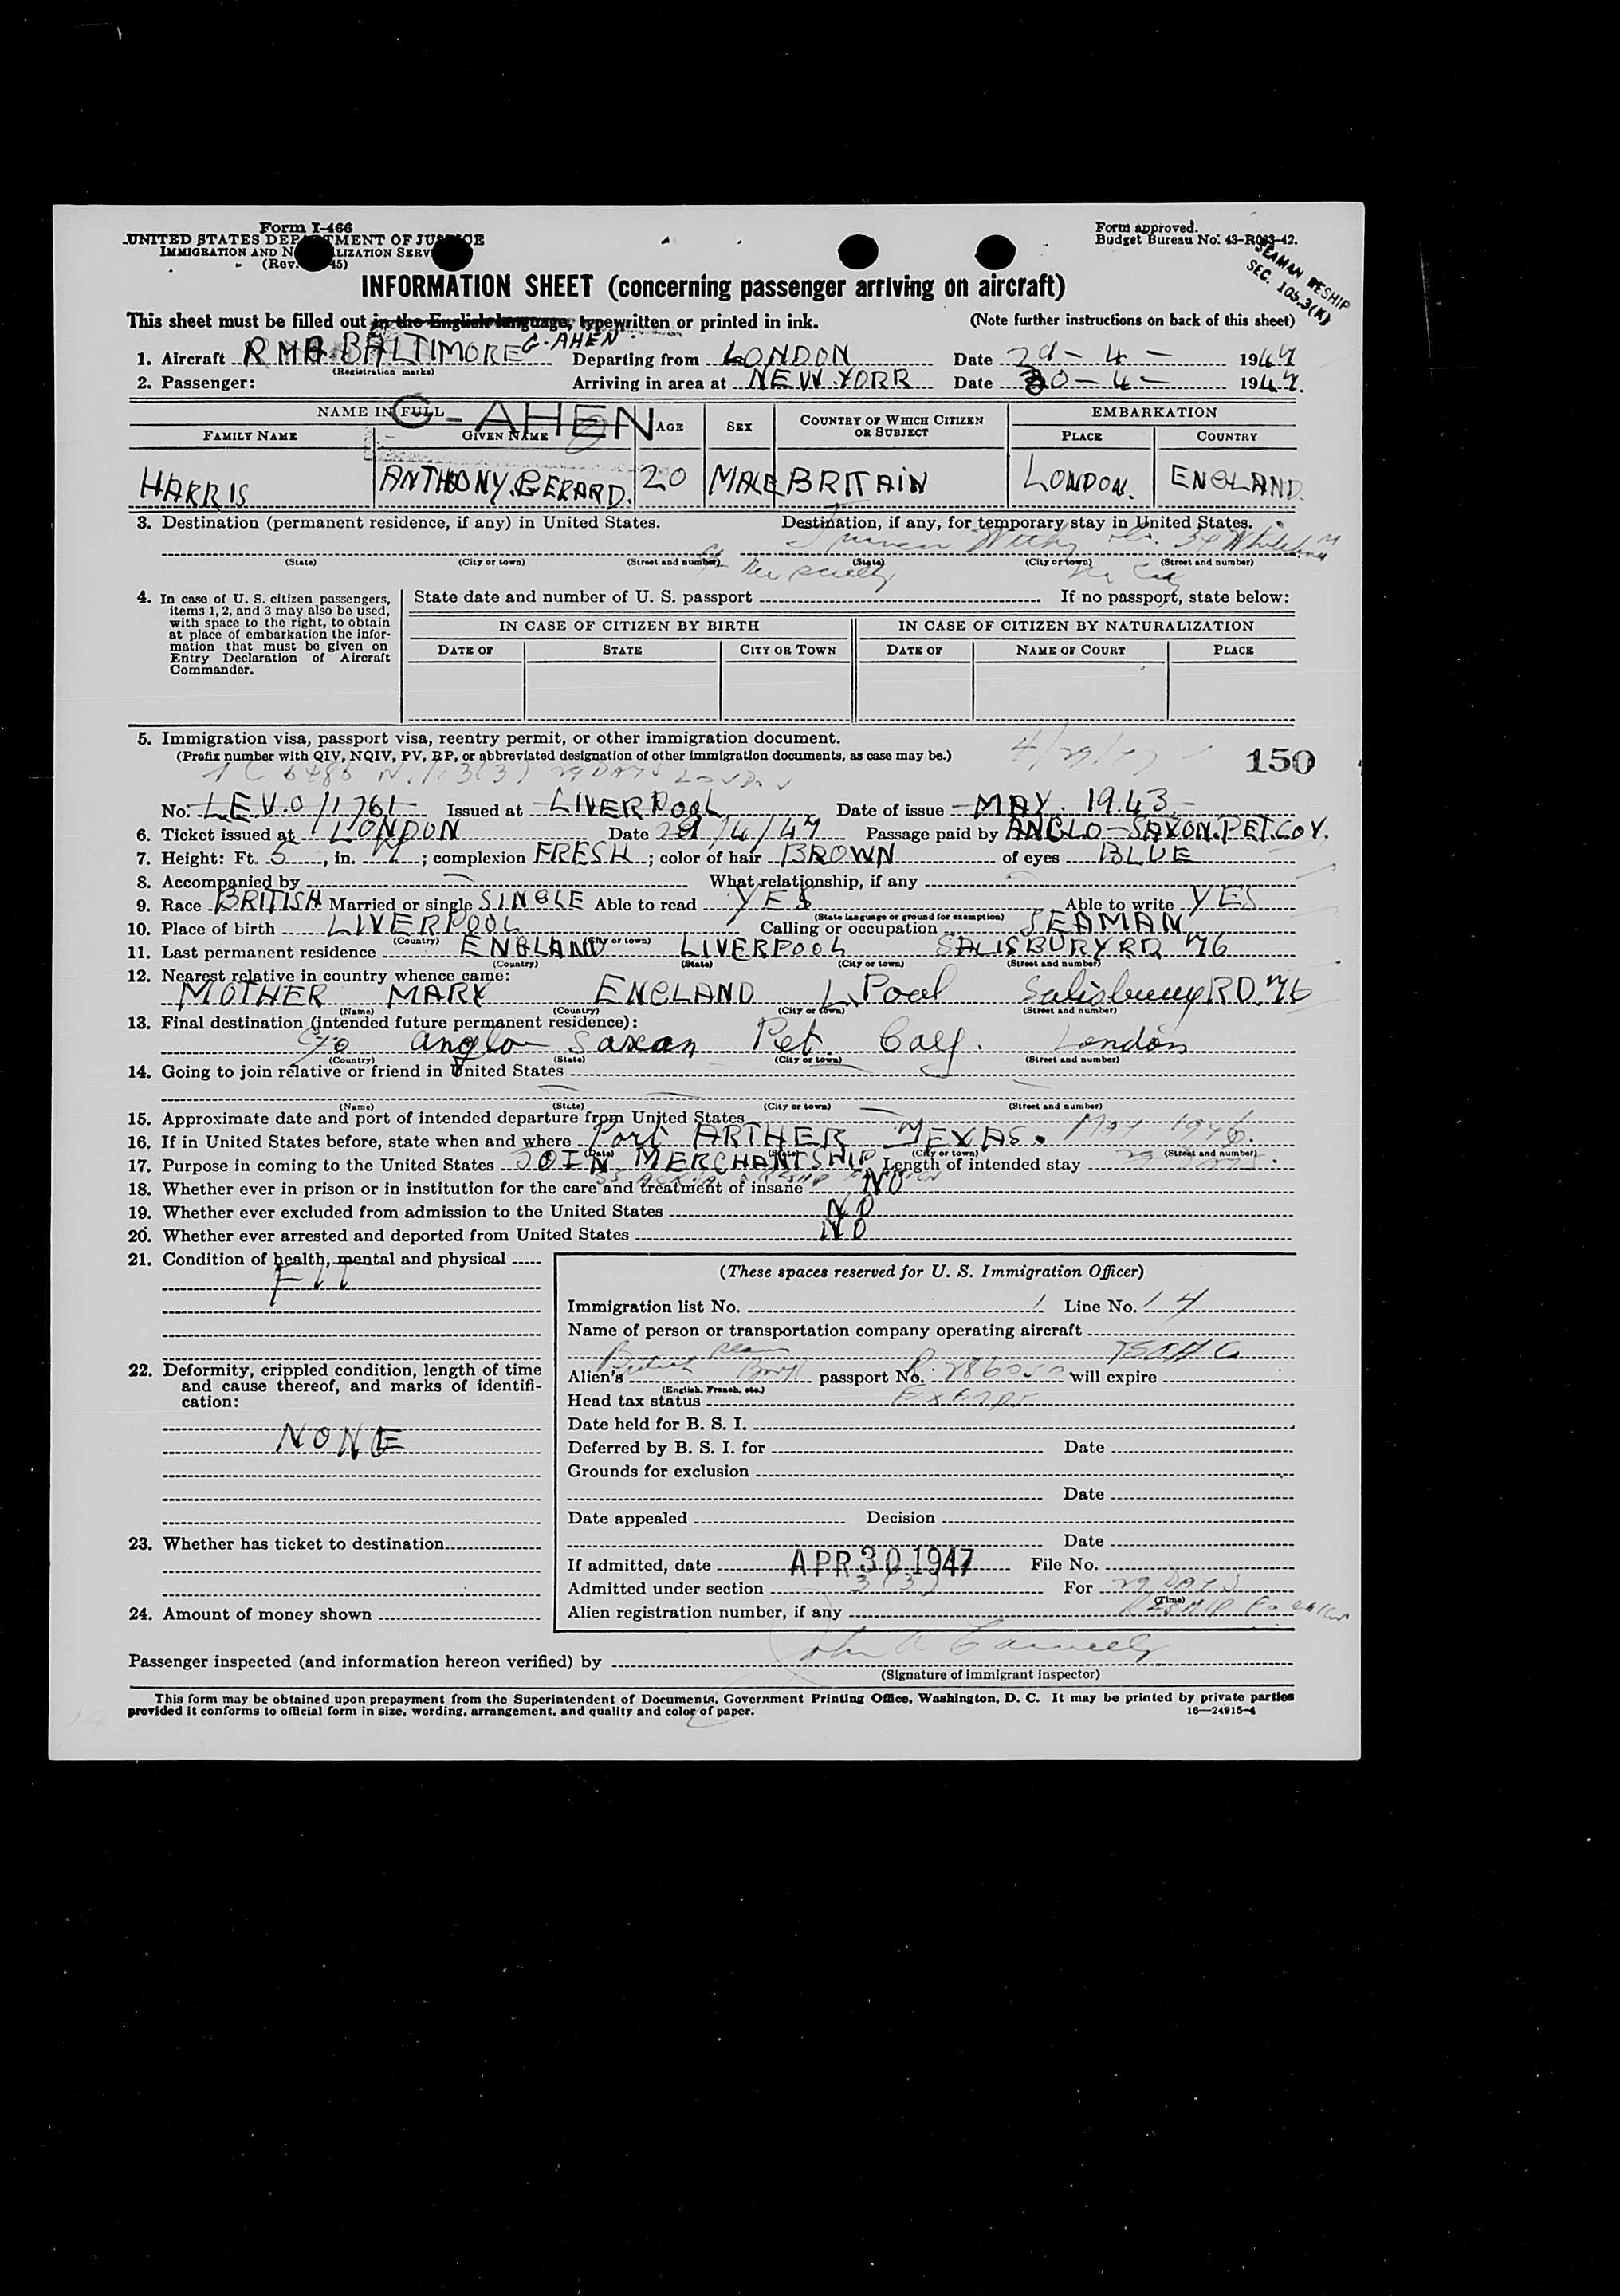 Form I-466
UNITED STATES DEPARTMENT OF JUSTICE
IMMIGRATION AND NATURALIZATION SERVICE
(Rev. 45)
Form approved.
Budget Bureau No. 43-R063-42.
SEAMAN RESHIP
SEC. 105.3(K)
INFORMATION SHEET (concerning passenger arriving on aircraft)
This sheet must be filled out in the English language, typewritten or printed in ink. (Note further instructions on back of this sheet)
G-AHEN
1. Aircraft RMA. BALTIMORE Departing from LONDON Date 29-4- 1947
(Registration marks)
2. Passenger: Arriving in area at NEW YORK Date 30-4- 1947.
G-AHEN
NAME IN FULL AGE SEX COUNTRY OF WHICH CITIZEN OR SUBJECT EMBARKATION
FAMILY NAME GIVEN NAME PLACE COUNTRY
HARRIS ANTHONY.GERARD. 20 MALE BRITAIN LONDON. ENGLAND.
3. Destination (permanent residence, if any) in United States. Destination, if any, for temporary stay in United States.
(State) (City or town) (Street and number) (State) (City or town) (Street and number)
4. In case of U. S. citizen passengers, items 1, 2, and 3 may also be used, with space to the right, to obtain at place of embarkation the information that must be given on Entry Declaration of Aircraft Commander.
State date and number of U. S. passport If no passport, state below:
IN CASE OF CITIZEN BY BIRTH IN CASE OF CITIZEN BY NATURALIZATION
DATE OF STATE CITY OR TOWN DATE OF NAME OF COURT PLACE
5. Immigration visa, passport visa, reentry permit, or other immigration document.
(Prefix number with QIV, NQIV, PV, RP, or abbreviated designation of other immigration documents, as case may be.) 4/29/47 150
3(3) 29 DAYS LONDON
No. LEV.O 11761 Issued at LIVERPOOL Date of issue MAY. 1943
6. Ticket issued at LONDON Date 29/4/47 Passage paid by ANGLO-SAXON.PET.COY.
7. Height: Ft. 5, in. 7; complexion FRESH; color of hair BROWN of eyes BLUE
8. Accompanied by — What relationship, if any —
9. Race BRITISH Married or single SINGLE Able to read YES Able to write YES
(State language or ground for exemption)
10. Place of birth LIVERPOOL Calling or occupation SEAMAN
(Country) (City or town)
11. Last permanent residence ENGLAND LIVERPOOL SALISBURY RD 76
(Country) (State) (City or town) (Street and number)
12. Nearest relative in country whence came:
MOTHER MARY ENGLAND L.Pool Salisbury RD. 76
(Name) (Country) (City or town) (Street and number)
13. Final destination (intended future permanent residence):
C/o Anglo Saxon Pet Coy. London
(Country) (State) (City or town) (Street and number)
14. Going to join relative or friend in United States
(Name) (State) (City or town) (Street and number)
15. Approximate date and port of intended departure from United States
16. If in United States before, state when and where Port ARTHER TEXAS. MAY 1946.
(Date) (State) (City or town) (Street and number)
17. Purpose in coming to the United States JOIN MERCHANTSHIP Length of intended stay 29 DAYS.
18. Whether ever in prison or in institution for the care and treatment of insane NO
19. Whether ever excluded from admission to the United States NO
20. Whether ever arrested and deported from United States NO
21. Condition of health, mental and physical
FIT
22. Deformity, crippled condition, length of time and cause thereof, and marks of identification:
NONE
23. Whether has ticket to destination
24. Amount of money shown
(These spaces reserved for U. S. Immigration Officer)
Immigration list No. 1 Line No. 14
Name of person or transportation company operating aircraft
BOAC
Alien's British passport No. will expire
(English, French, etc.)
Head tax status Exempt
Date held for B. S. I.
Deferred by B. S. I. for Date
Grounds for exclusion
Date
Date appealed Decision
Date
If admitted, date APR 30 1947 File No.
Admitted under section 3(3) For 29 DAYS
(Time)
Alien registration number, if any RESHIP Foreign
Passenger inspected (and information hereon verified) by
(Signature of immigrant inspector)
This form may be obtained upon prepayment from the Superintendent of Documents, Government Printing Office, Washington, D. C. It may be printed by private parties
provided it conforms to official form in size, wording, arrangement, and quality and color of paper. 16—24915-4